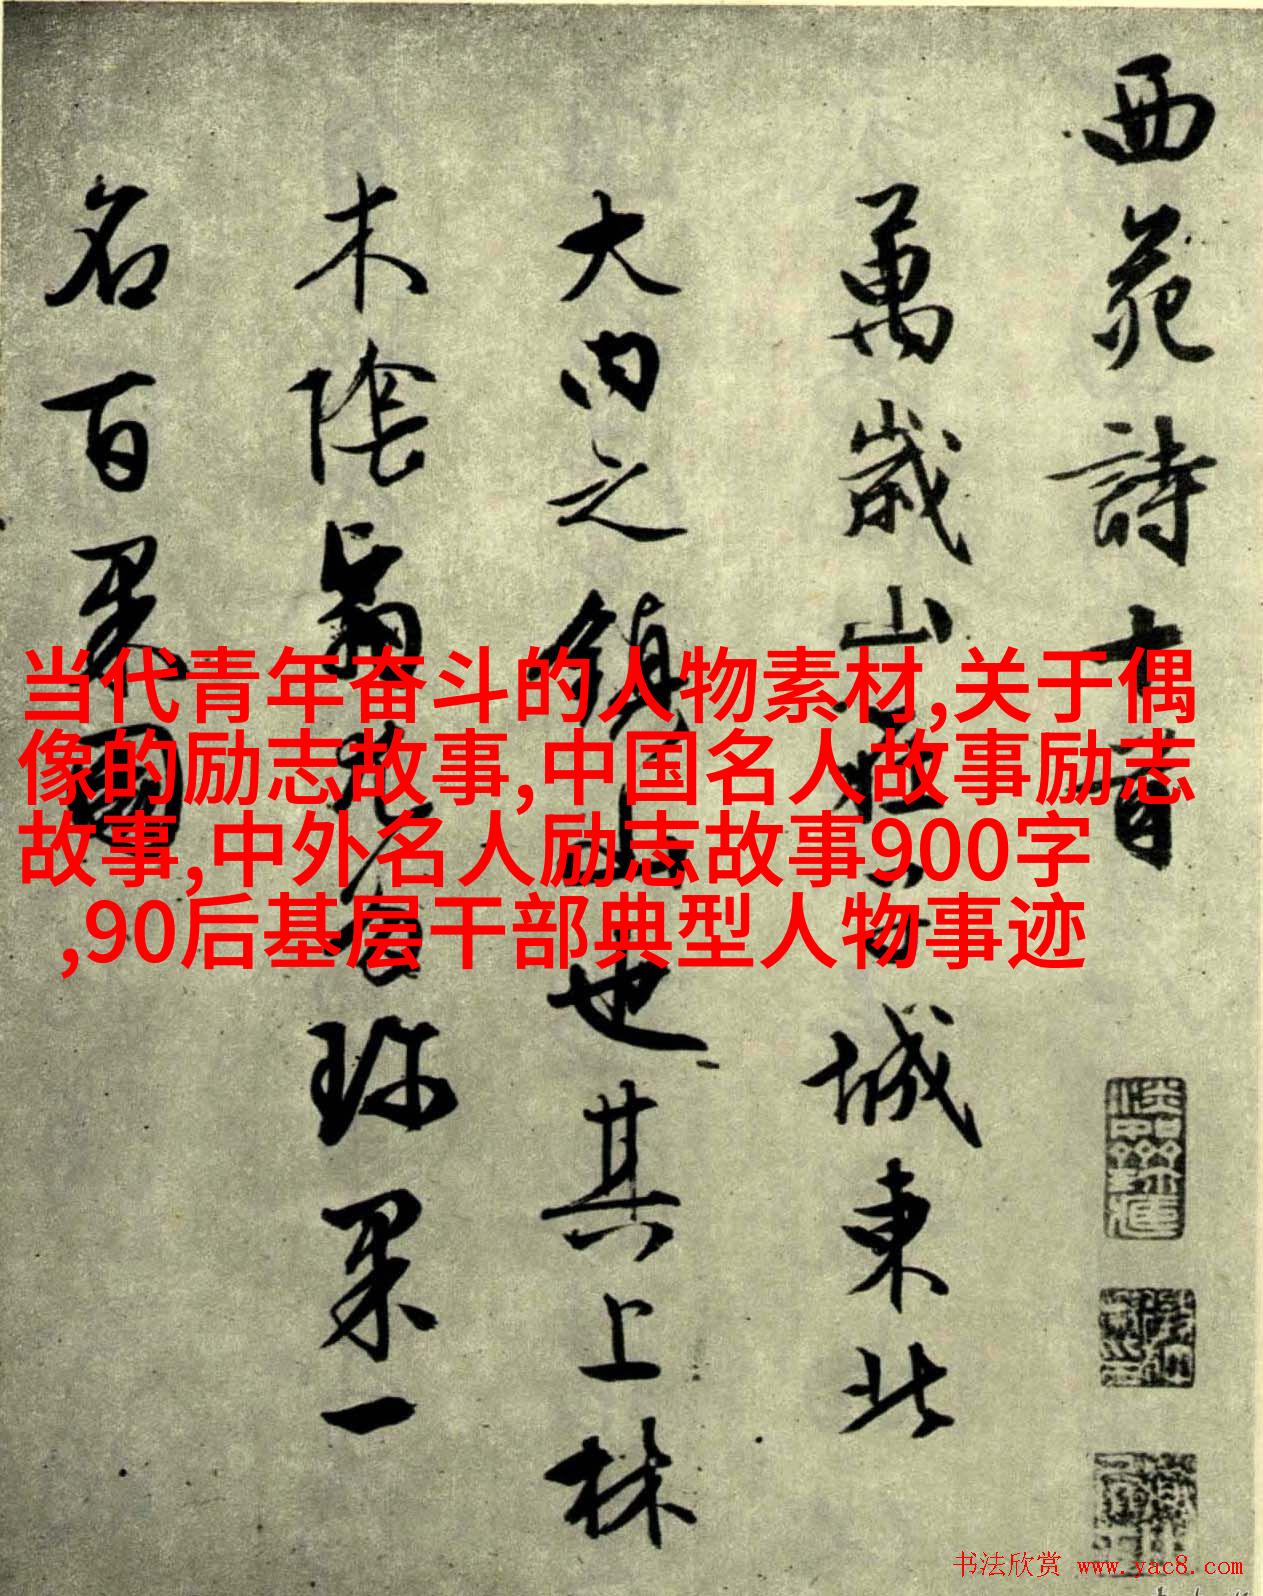 西苑詩十首
萬歲山在子城東北
大内之鎮山也其上林
木陰翳尤多珍果一
名百果園
当代青年奋斗的人物素材,关于偶
像的励志故事,中国名人故事励志
故事,中外名人励志故事900字
,90后基层干部典型人物事迹
书法欣赏 www.yac8.com